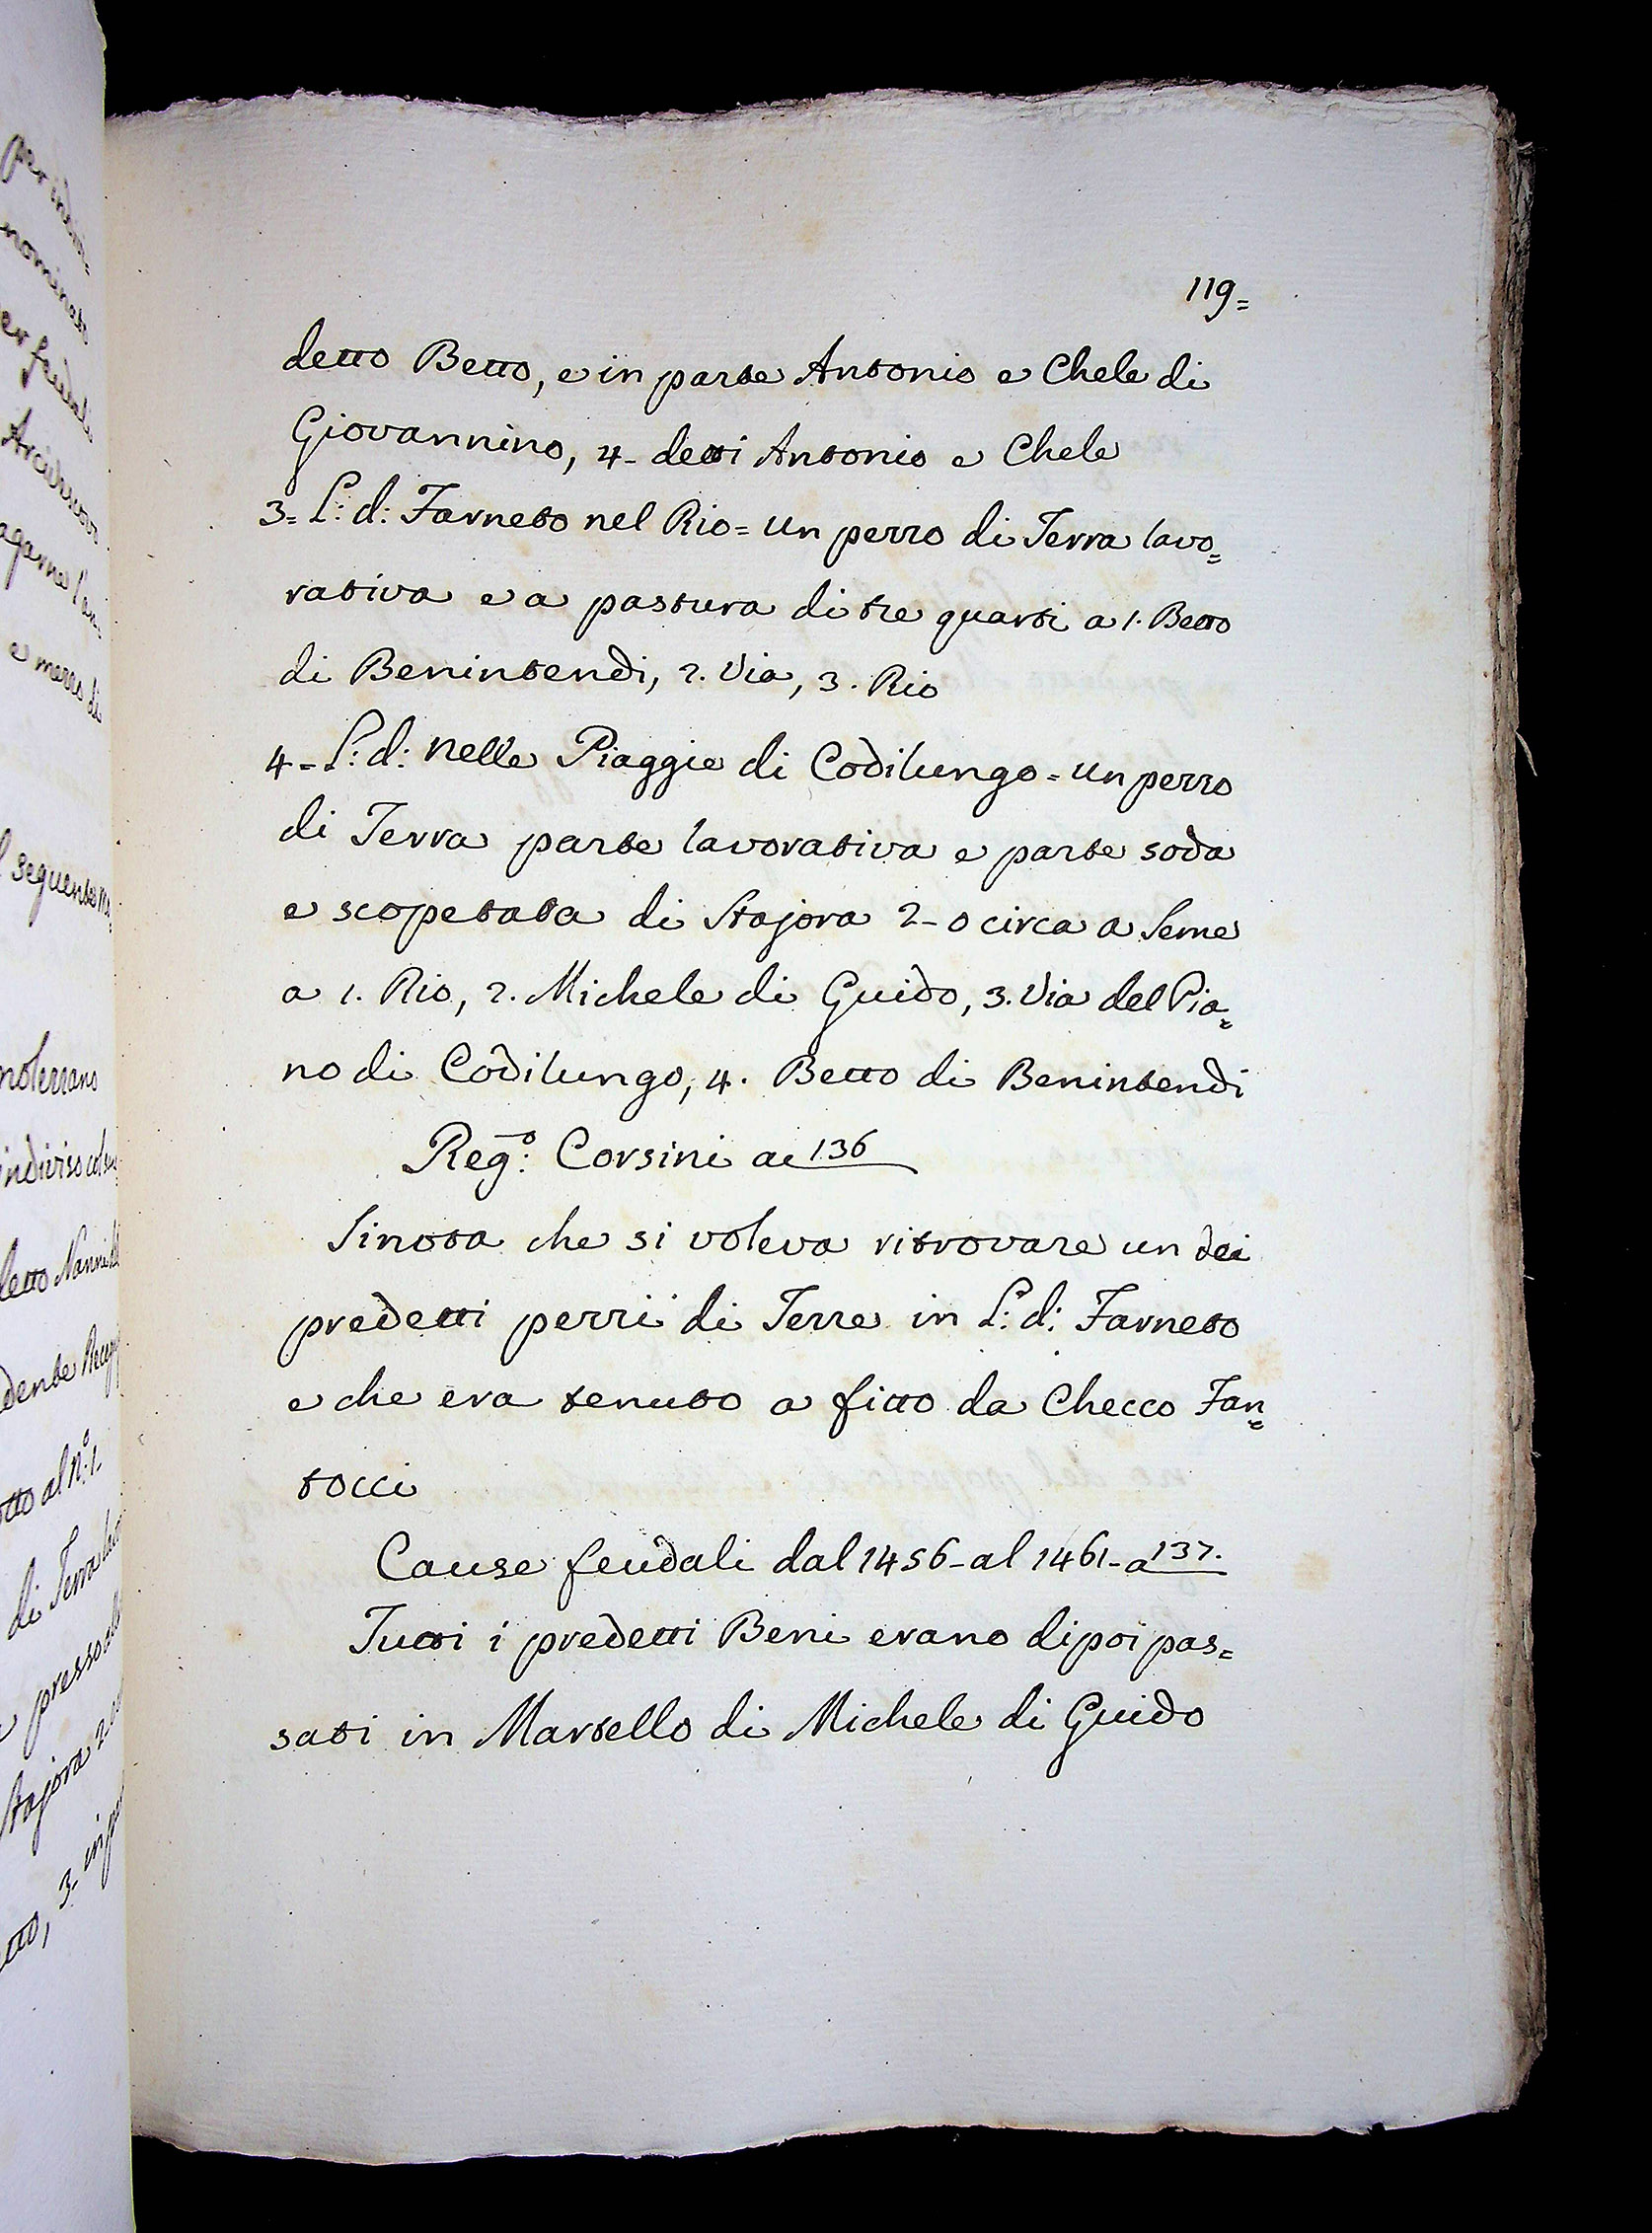 119=
detto Betto, e in parte Antonio e Chele di
Giovannino, 4- detti Antonio e Chele
3= L: d: Farneto nel Rio= un pezzo di Terra lavo=
rativa e a pastura di tre quarti a 1. Betto
di Benintendi, 2. Via, 3. Rio
4= L: d: nelle Piaggie di Codilungo= un pezzo
di Terra parte lavorativa e parte soda
e scopetata di Stajora 2-0 circa a Seme
a 1. Rio, 2. Michele di Guido, 3. Via del Pia=
no di Codilungo, 4. Betto di Benintendi
Reg:º Corsini ac 136
Sinota che si voleva ritrovare un dei
predetti pezzi di Terre in L: d: Farneto
e che era tenuto a fitto da Checco Fan=
tocci
Cause feudali dal 1456- al 1461- a 137.
Tutti i predetti Beni erano dipoi pas=
sati in Martello di Michele di Guido
nominati
er feudali
e mezzo di
l seguente
indiviso col
detto Nanni
dente
otto al Nº: 1.
di Terra
presso
Stajora 2
3=